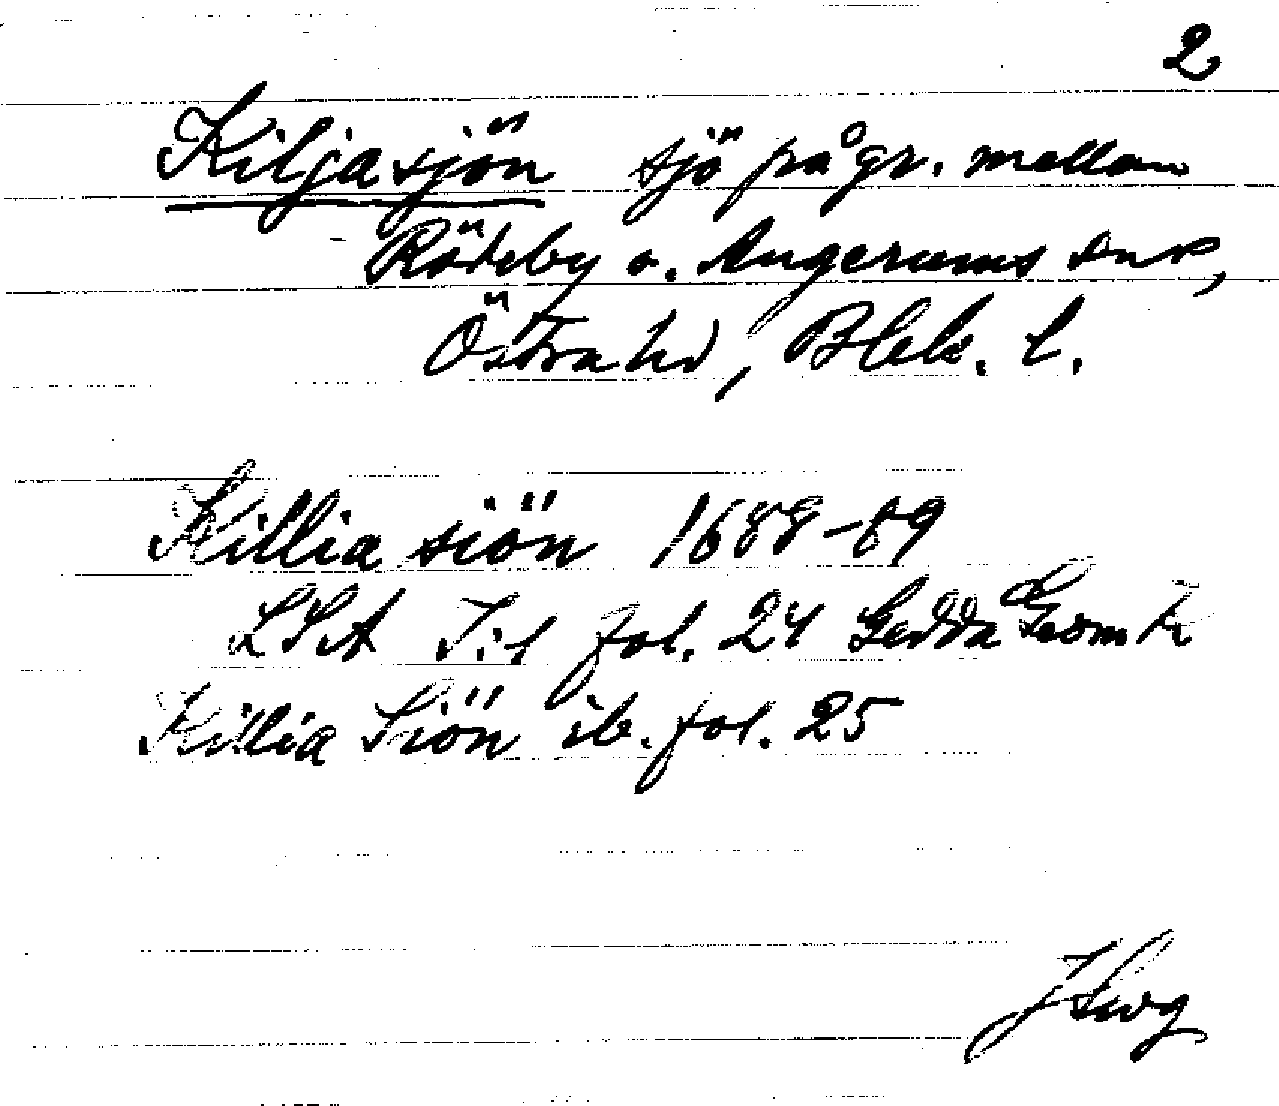 2
Kiljasjön sjö på gr. mellan
Rödeby o. Augerums snr,
Östra hd, Blek. l.
Killia siön 1688-89
LSA I:1 fol. 24 Gedda Geom k
Killia Siön ib. fol. 25